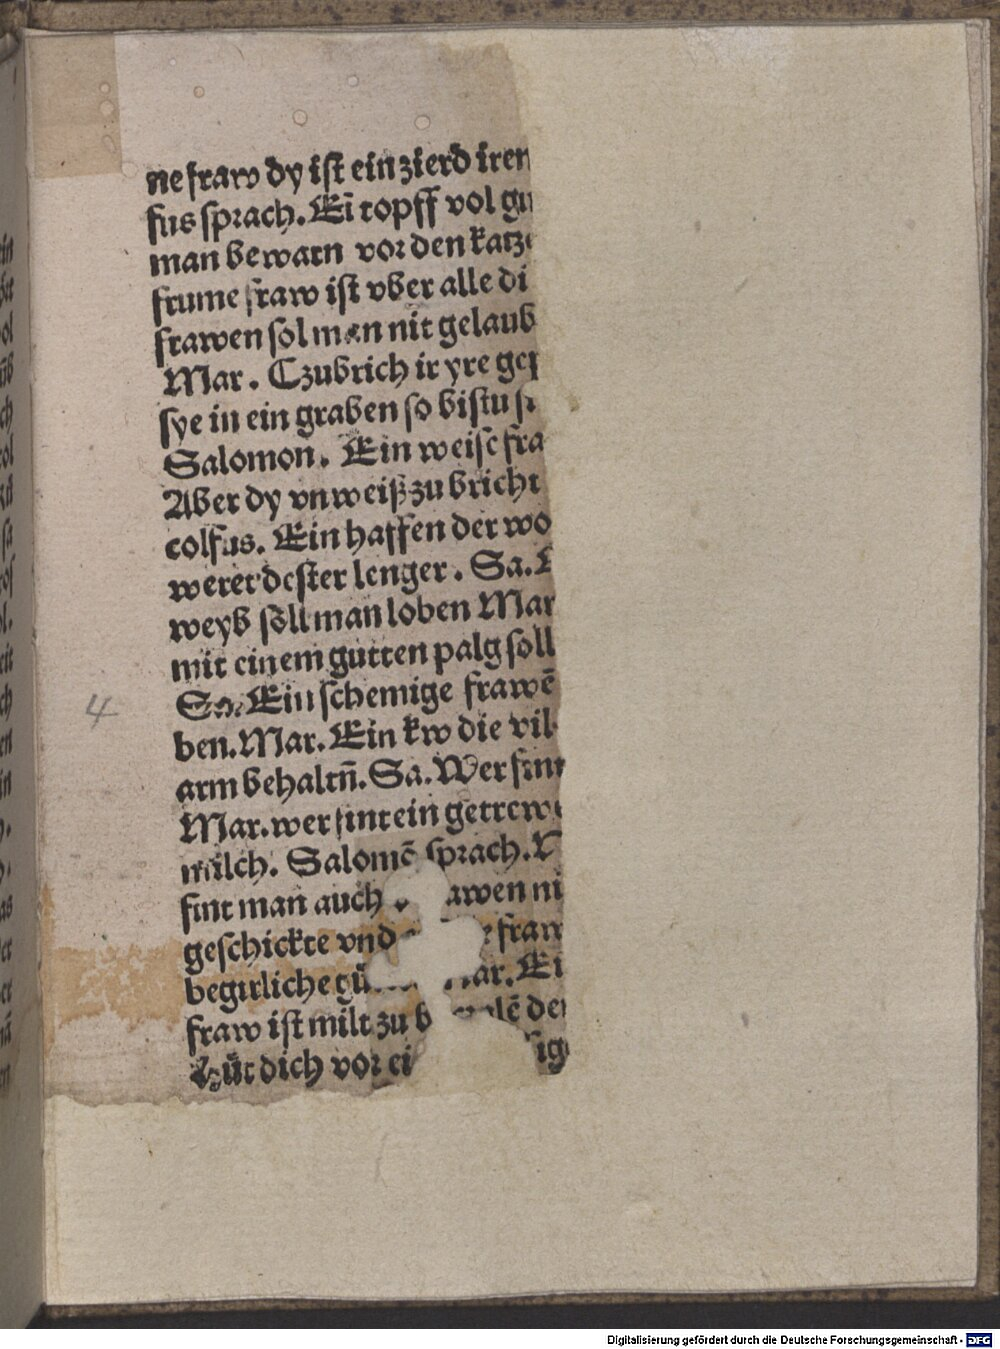 ne fraw dy ist ein zierd iren
fus sprach. Eī topff vol gu
man bewarn vor den katze
frume fraw ist vber alle di
frawen sol man nit gelaub
Mar. Czubrich ir yre
sye in ein graben so bistu
Salomon. Ein weise fra
Aber dy vnweiß zu bricht
colfus. Ein haffen der wo
weret dester lenger. Sa.
weyb söll man loben Mar
mit einem gutten palg soll
Sa. Ein schemige frawē
ben. Mar. Ein kw die vil
arm behaltn̄. Sa. Wer fint
Mar. wer fint ein getrew
milch. Salomō sprach.
fint man auch awen ni
geschickte vnd e fraw
begirliche gü ar. Ei
fraw ist milt zu b lē de
Hüt dich vor ei ig
4
Digitalisierung gefördert durch die Deutsche Forschungsgemeinschaft - DFG